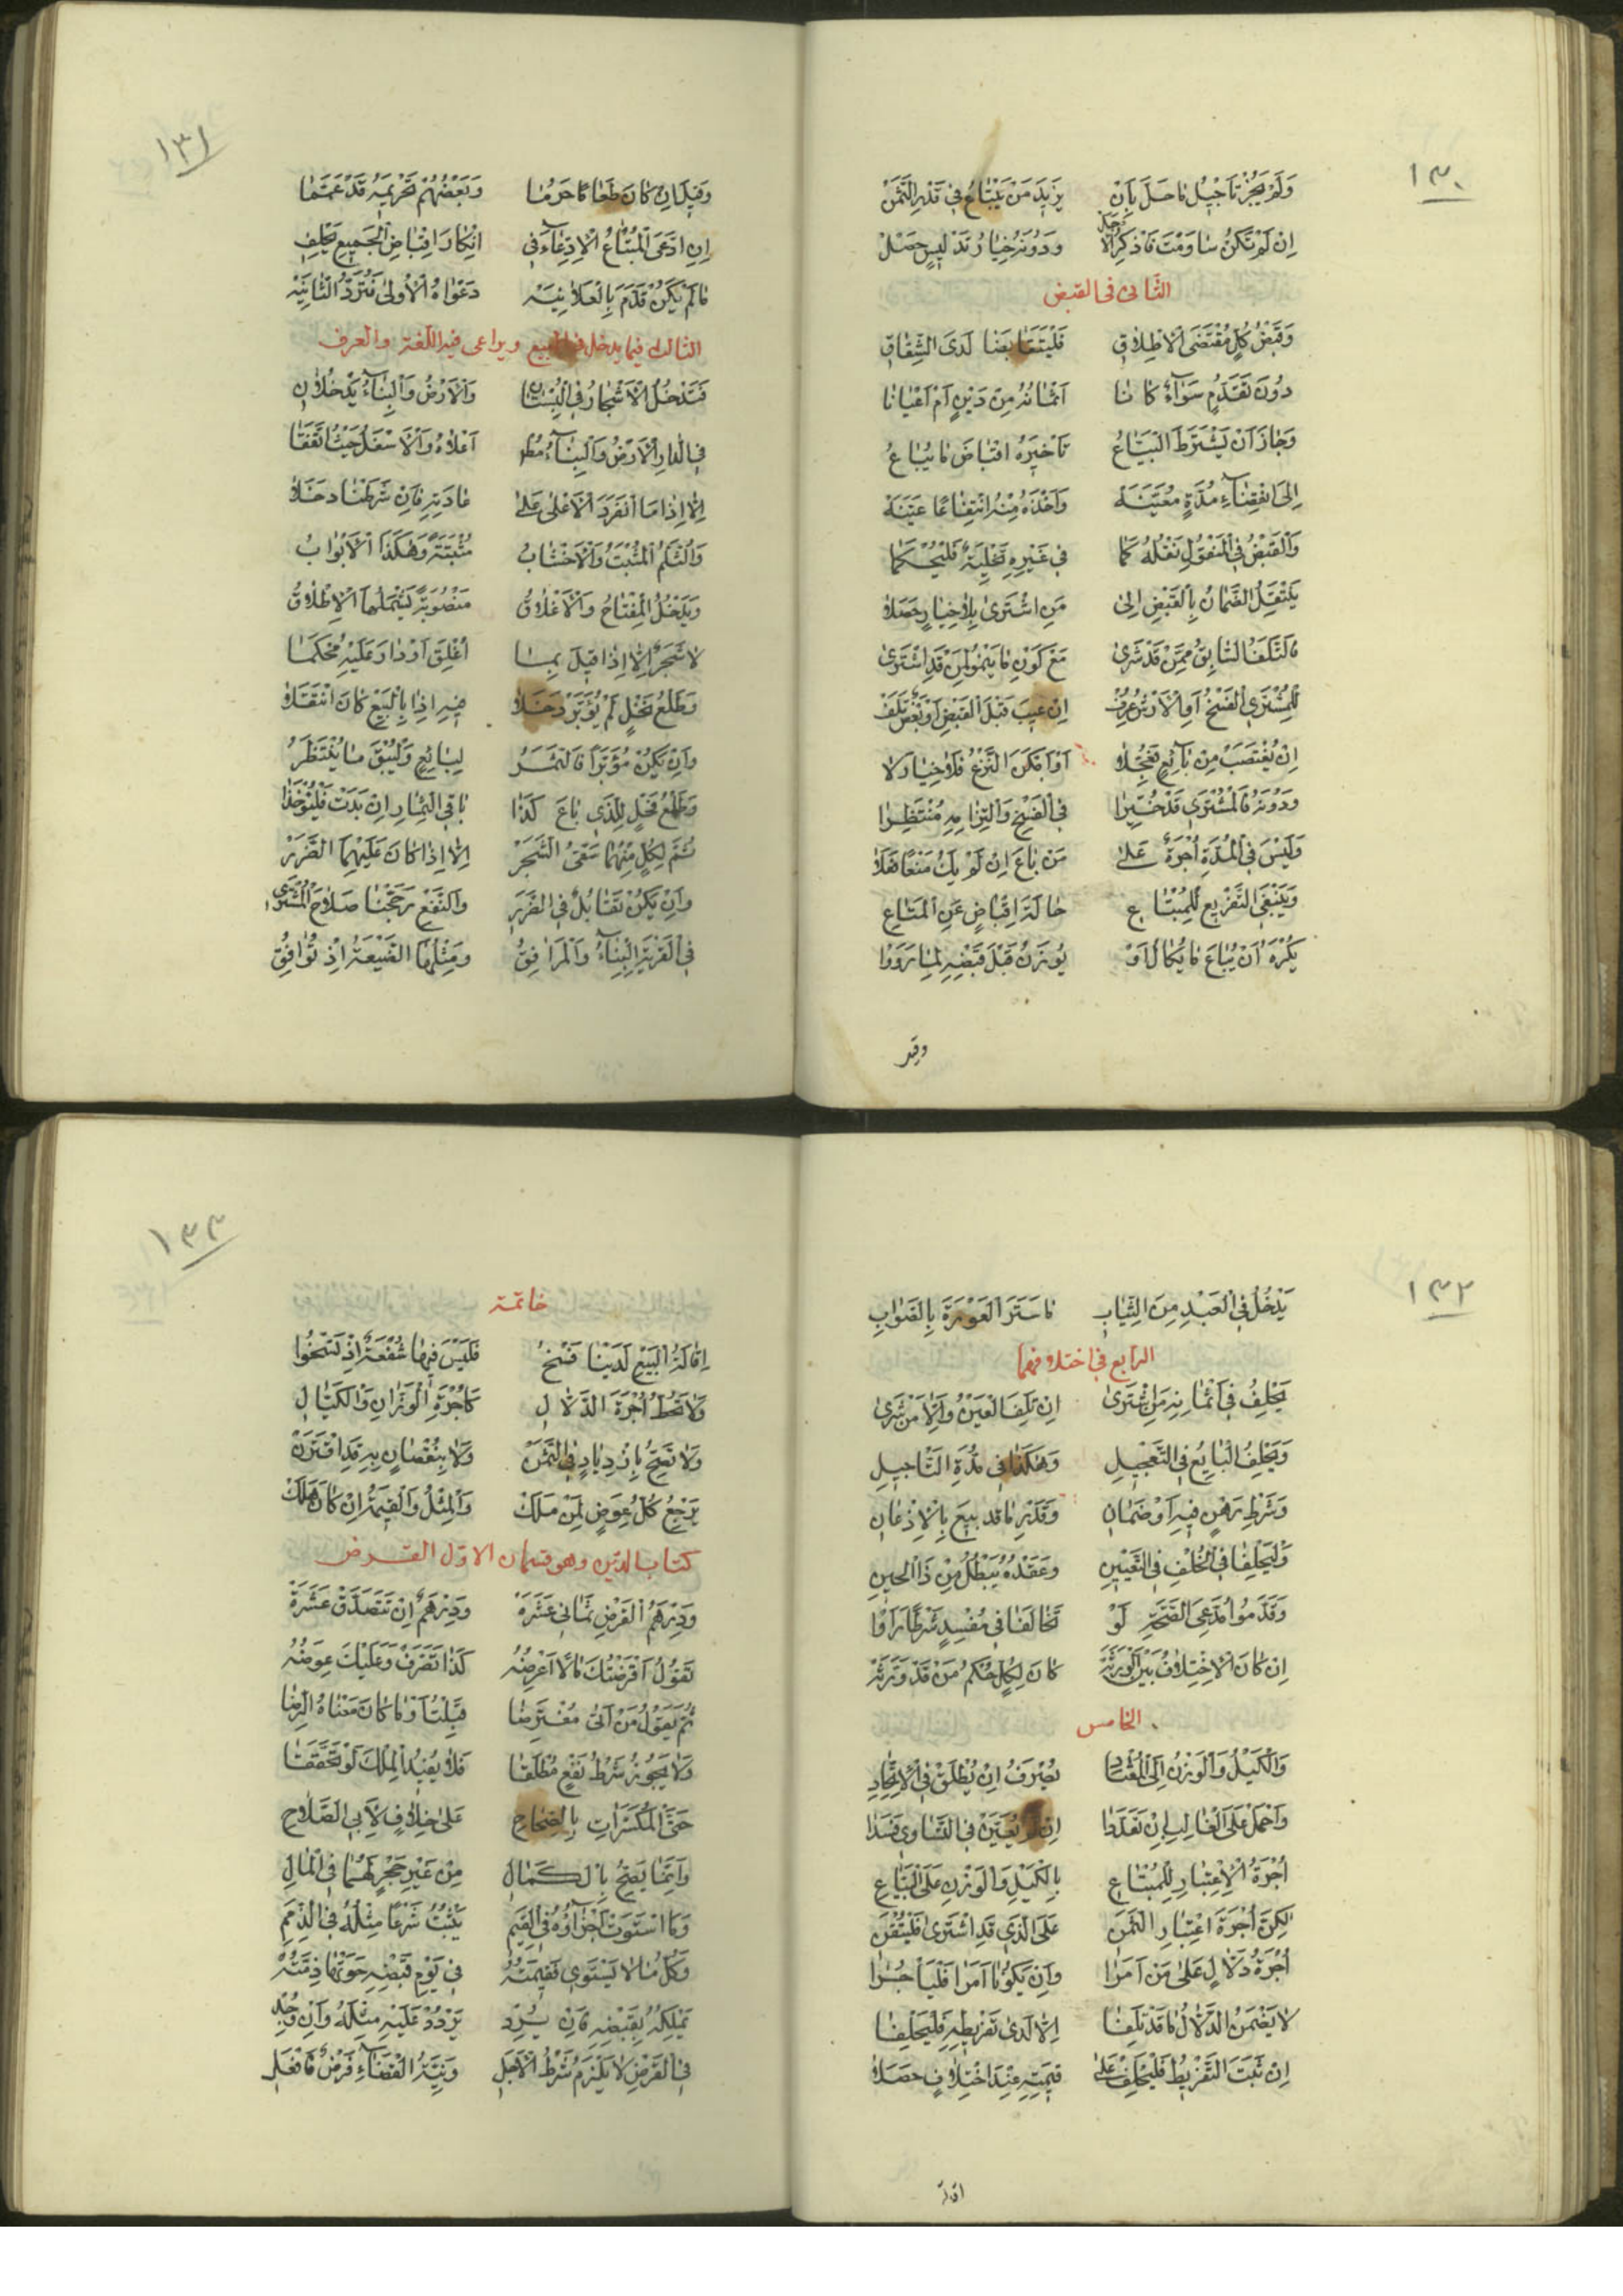 ١٣٠
وَلَمْ يَجُزْ تَأجِيْلُ مَا حَلَّ بِاَنْ يَزِيْدَ مَنْ يَبْتَاعُ فِي قَدْرِ الثَّمَنْ
اِنْ لَمْ تَكُنْ سَاوَمْتَ فَاذْكُرِ الْاَجَلْ وَدُوْنَهُ خِيَارُ تَدْلِيسٍ حَصَلْ
الثانى فى القبض
وَقَبْضُ كُلٍّ مُقْتَضَى الْاِطْلَاقِ فَلْيَتَقَابَضَا لَدَى الشِّقَاقِ
دُوْنَ تَقَدُّمٍ سَوَاءٌ كَانَا اَثْمَانُهُ مِنْ دَيْنٍ اَمْ اَعْيَانَا
وَجَازَ اَنْ يَشْتَرِطَ الْبَيَّاعُ تَأخِيْرَهُ اقْبَاضَ مَا يُبَاعُ
اِلَى انْقِضَاءِ مُدَّةٍ مُعَيَّنَهْ وَاَخْذَهُ مِنْهُ انْتِفَاعًا عَيَّنَهْ
وَالْقَبْضُ فِي الْمَنْقُوْلِ نَقْلُهُ كَمَا فِي غَيْرِهِ تَخْلِيَةٌ فَلْيُحْكَمَا
يَنْتَقِلُ الضَّمَانُ بِالْقَبْضِ اِلَى مَنِ اشْتَرَى بِلَا خِيَارٍ حَصَلَا
مَعْ كَوْنِ مَا يَنْمُو لِمَنْ قَدِ اشْتَرَى
لِلْمُشْتَرِي الْفَسْخُ اَوِ الْاَرْشُ عُرِفْ اِنْ عِيْبَ قَبْلَ الْقَبْضِ اَوْ بَعْضٌ تَلِفْ
اِنْ يُغْتَصَبْ مِنْ بَائِعٍ اَوْ اَمْكَنَ النَّزْعُ فَلَا خِيَارَ لَا
وَدُوْنَهُ فَالْمُشْتَرِي قَدْ خُيِّرَا فِي الْفَسْخِ وَالْتِزَامِهِ مُنْتَظِرَا
وَلَيْسَ فِي الْمُدَّةِ اُجْرَةٌ عَلَى مَنْ بَاعَ اِنْ لَمْ يَكُ مَنْعًا فَعَلَا
وَيَنْبَغِي التَّفْرِيْعُ لِلْمُبْتَاعِ حَالَةَ اِقْبَاضٍ عَنِ الْمَتَاعِ
يُكْرَهُ اَنْ يُبَاعَ مَا يُكَالُ اَوْ يُوْزَنُ قَبْلَ قَبْضِهِ لِمَا رَوَوْا
وقيل
١٣١
وَقِيْلَ اِنْ كَانَ طَعَامًا حَرُمَا وَبَعْضُهُمْ تَحْرِيْمَهُ قَدْ عَمَّمَا
اِنِ ادَّعَى الْمُبْتَاعُ الْاِدِّعَاءَ فِي اِنْكَارِ اقْبَاضِ الْجَمِيْعِ يَحْلِفِ
مَا لَمْ يَكُنْ قَدَّمَ بِالْعَلَانِيَهْ دَعْوَاهُ الْاُوْلَى فَتُرَدُّ الثَّانِيَهْ
الثالث فيما يدخل فى المبيع ويراعى فيه اللغة والعرف
فَتَدْخُلُ الْاَشْجَارُ فِي الْبُسْتَانِ وَالْاَرْضُ وَالْبِنَاءُ يَدْخُلَانِ
فِي الدَّارِ الْاَرْضُ وَالْبِنَاءُ مُطْلَقَا اَعْلَاهُ وَالْاَسْفَلُ حَيْثُ اتَّفَقَا
اِلَّا اِذَا مَا انْفَرَدَ الْاَعْلَى عَلَى عَادَتِهِ فَاِنْ شَرَطْنَا دَخَلَا
وَالسُّلَّمُ الْمُثْبَتُ وَالْاَخْشَابُ مُثْبَتَةً وَهَكَذَا الْاَبْوَابُ
وَيَدْخُلُ الْمِفْتَاحُ وَالْاَغْلَاقُ مَنْصُوْبَةً يَشْمَلُهَا الْاِطْلَاقُ
لَا شَجَرٌ اِلَّا اِذَا قِيْلَ بِمَا اُغْلِقَ اَوْ دَارَ عَلَيْهِ مُحْكَمَا
وَطَلْعُ نَخْلٍ لَمْ يُؤَبَّرْ دَخَلَا فِيْهِ اِذَا بِالْبَيْعِ كَانَ انْتَقَلَا
وَاِنْ يَكُنْ مُؤَبَّرًا فَالثَّمَرُ لِبَائِعٍ وَلْيُبْقَ مَا يُنْتَظَرُ
وَطَلْعُ فَحْلٍ لِلَّذِي بَاعَ كَذَا بَاقِي الثِّمَارِ اِنْ بَدَتْ فَلْيُؤْخَذَا
ثُمَّ لِكُلٍّ مِنْهُمَا سَقْيُ الشَّجَرْ اِلَّا اِذَا كَانَ عَلَيْهِمَا الضَّرَرْ
وَاِنْ يَكُنْ تَقَابُلٌ فِي الضَّرَرِ وَالنَّفْعِ رَجَّحْنَا صَلَاحَ الْمُشْتَرِي
فِي الْقَرْيَةِ الْبِنَاءُ وَالْمَرَافِقُ وَمِثْلُهَا الضَّيْعَةُ اِذْ تُوَافِقُ
١٣٢
يَدْخُلُ فِي الْعَبْدِ مِنَ الثِّيَابِ مَا سَتَرَ الْعَوْرَةَ بِالصَّوَابِ
الرابع فى اختلافهما
يَحْلِفُ فِي اَثْمَانِهِ مَنِ اشْتَرَى اِنْ تَلِفَ الْعَيْنُ وَاِلَّا مَنْ شَرَى
وَيَحْلِفُ الْبَايِعُ فِي التَّعْجِيْلِ وَهَكَذَا فِي مُدَّةِ التَّاجِيْلِ
وَشَرْطِ رَهْنٍ فِيْهِ اَوْ ضَمَانِ وَقَدْرِ مَا قَدْ بِيْعَ بِالْاِذْعَانِ
وَلْيَحْلِفَا فِي الْخُلْفِ فِي التَّعْيِيْنِ وَعَقْدُهُ يَبْطُلُ مِنْ ذَا الْحِيْنِ
وَقَدَّمُوا مُدَّعِيَ الصِّحَّةِ لَوْ تَخَالَفَا فِي مُفْسِدٍ شَرْطًا رَاَوْا
اِنْ كَانَ الْاِخْتِلَافُ بَيْنَ الْوَرَثَهْ كَانَ لِكُلٍّ حُكْمُ مَنْ قَدْ وَرِثَهْ
الخامس
وَالْكَيْلُ وَالْوَزْنُ اِلَى الْمُعْتَادِ يُصْرَفُ اِنْ يُطْلَقْ فِي الْاِتِّحَادِ
وَاحْمِلْ عَلَى الْغَالِبِ اِنْ تَعَدَّدَا اِنْ لَمْ يُعَيَّنْ فِي التَّسَاوِي فَسَدَا
اُجْرَةُ الْاِعْتِبَارِ لِلْمُبْتَاعِ بِالْكَيْلِ وَالْوَزْنِ عَلَى الْبَيَّاعِ
لَكِنَّ اُجْرَةَ اعْتِبَارِ الثَّمَنِ عَلَى الَّذِي قَدِ اشْتَرَى فَلْيُتْقَنِ
اُجْرَةُ دَلَّالٍ عَلَى مَنْ اَمَرَا وَاِنْ يَكُوْنَا اَمَرَا فَلْيَأجُرَا
لَا يَضْمَنُ الدَّلَّالُ مَا قَدْ تَلِفَا اِلَّا لَدَى تَفْرِيْطِهِ فَلْيَحْلِفَا
اِنْ ثَبَتَ التَّفْرِيْطُ فَلْيَحْلِفْ عَلَى قِيْمَتِهِ عِنْدَ اخْتِلَافٍ حَصَلَا
اقالة
١٣٣
خاتمة
اِقَالَةُ الْبَيْعِ لَدَيْنَا فَسْخُ فَلَيْسَ فِيْهَا شُفْعَةٌ
وَلَا تَحُطُّ اُجْرَةَ الدَّلَّالِ كَاُجْرَةِ الْوَزَّانِ وَالْكَيَّالِ
وَلَا تَصِحُّ بِازْدِيَادٍ فِي الثَّمَنْ وَلَا بِنُقْصَانٍ بِهِ قَدِ اقْتَرَنْ
يَرْجِعُ كُلُّ عِوَضٍ لِمَنْ مَلَكْ وَالْمِثْلُ وَالْقِيْمَةُ اِنْ كَانَ هَلَكْ
كتاب الدين وهو قسمان الاول القرض
وَدِرْهَمُ الْقَرْضِ ثَمَانِي عَشَرَهْ وَدِرْهَمٌ اِنْ تَتَصَدَّقْ عَشَرَهْ
تَقُوْلُ اَقْرَضْتُكَ مَالًا اَعْرِضُهْ كَذَا تَصَرَّفْ وَعَلَيْكَ عِوَضُهْ
ثُمَّ يَقُوْلُ مَنْ اَتَى مُقْتَرِضَا قَبِلْتُ اَوْ مَا كَانَ مَعْنَاهُ الرِّضَا
وَلَا يَجُوْزُ شَرْطُ نَفْعٍ مُطْلَقَا فَلَا يُفِيْدُ الْمِلْكَ لَوْ تَحَقَّقَا
حَتَّى الْمُكَسَّرَاتِ بِالصِّحَاحِ عَلَى خِلَافٍ لِاَبِي الصَّلَاحِ
وَاِنَّمَا يَصِحُّ بِالْكَمَالِ مِنْ غَيْرِ حَجْرٍ لَهُمَا فِي الْمَالِ
وَمَا اسْتَوَتْ اَجْزَاؤُهُ فِي الْقِيَمِ يَثْبُتُ شَرْعًا مِثْلُهُ فِي الذِّمَمِ
وَكُلُّ مَا لَا يَسْتَوِي فَقِيْمَتُهْ فِي يَوْمِ قَبْضِهِ حَوَتْهَا ذِمَّتُهْ
يَمْلِكُهُ بِقَبْضِهِ فَاِنْ يُرِدْ يَرْدُدْ عَلَيْهِ مِثْلَهُ وَاِنْ وُجِدْ
فِي الْقَرْضِ لَا يَلْزَمُ شَرْطُ الْاَجَلِ وَنِيَّةُ الْقَضَاءِ فَرْضٌ فَافْعَلِ